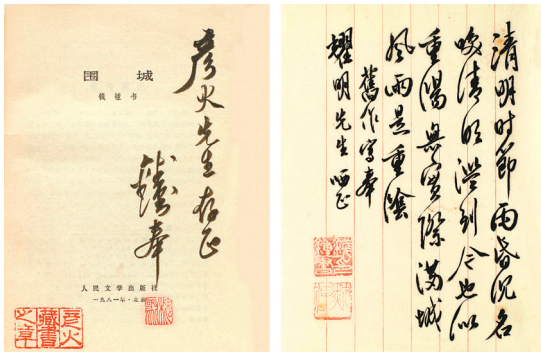 围城
钱锺书
彦火先生 存正
奉
人民文学出版社
一九八一年·北京
彦火
藏書
之章
清明时節雨昏沉名
喚清明濫到今也似
重陽無實際滿城
風雨是重陰
舊作寫奉
耀明先生 哂正